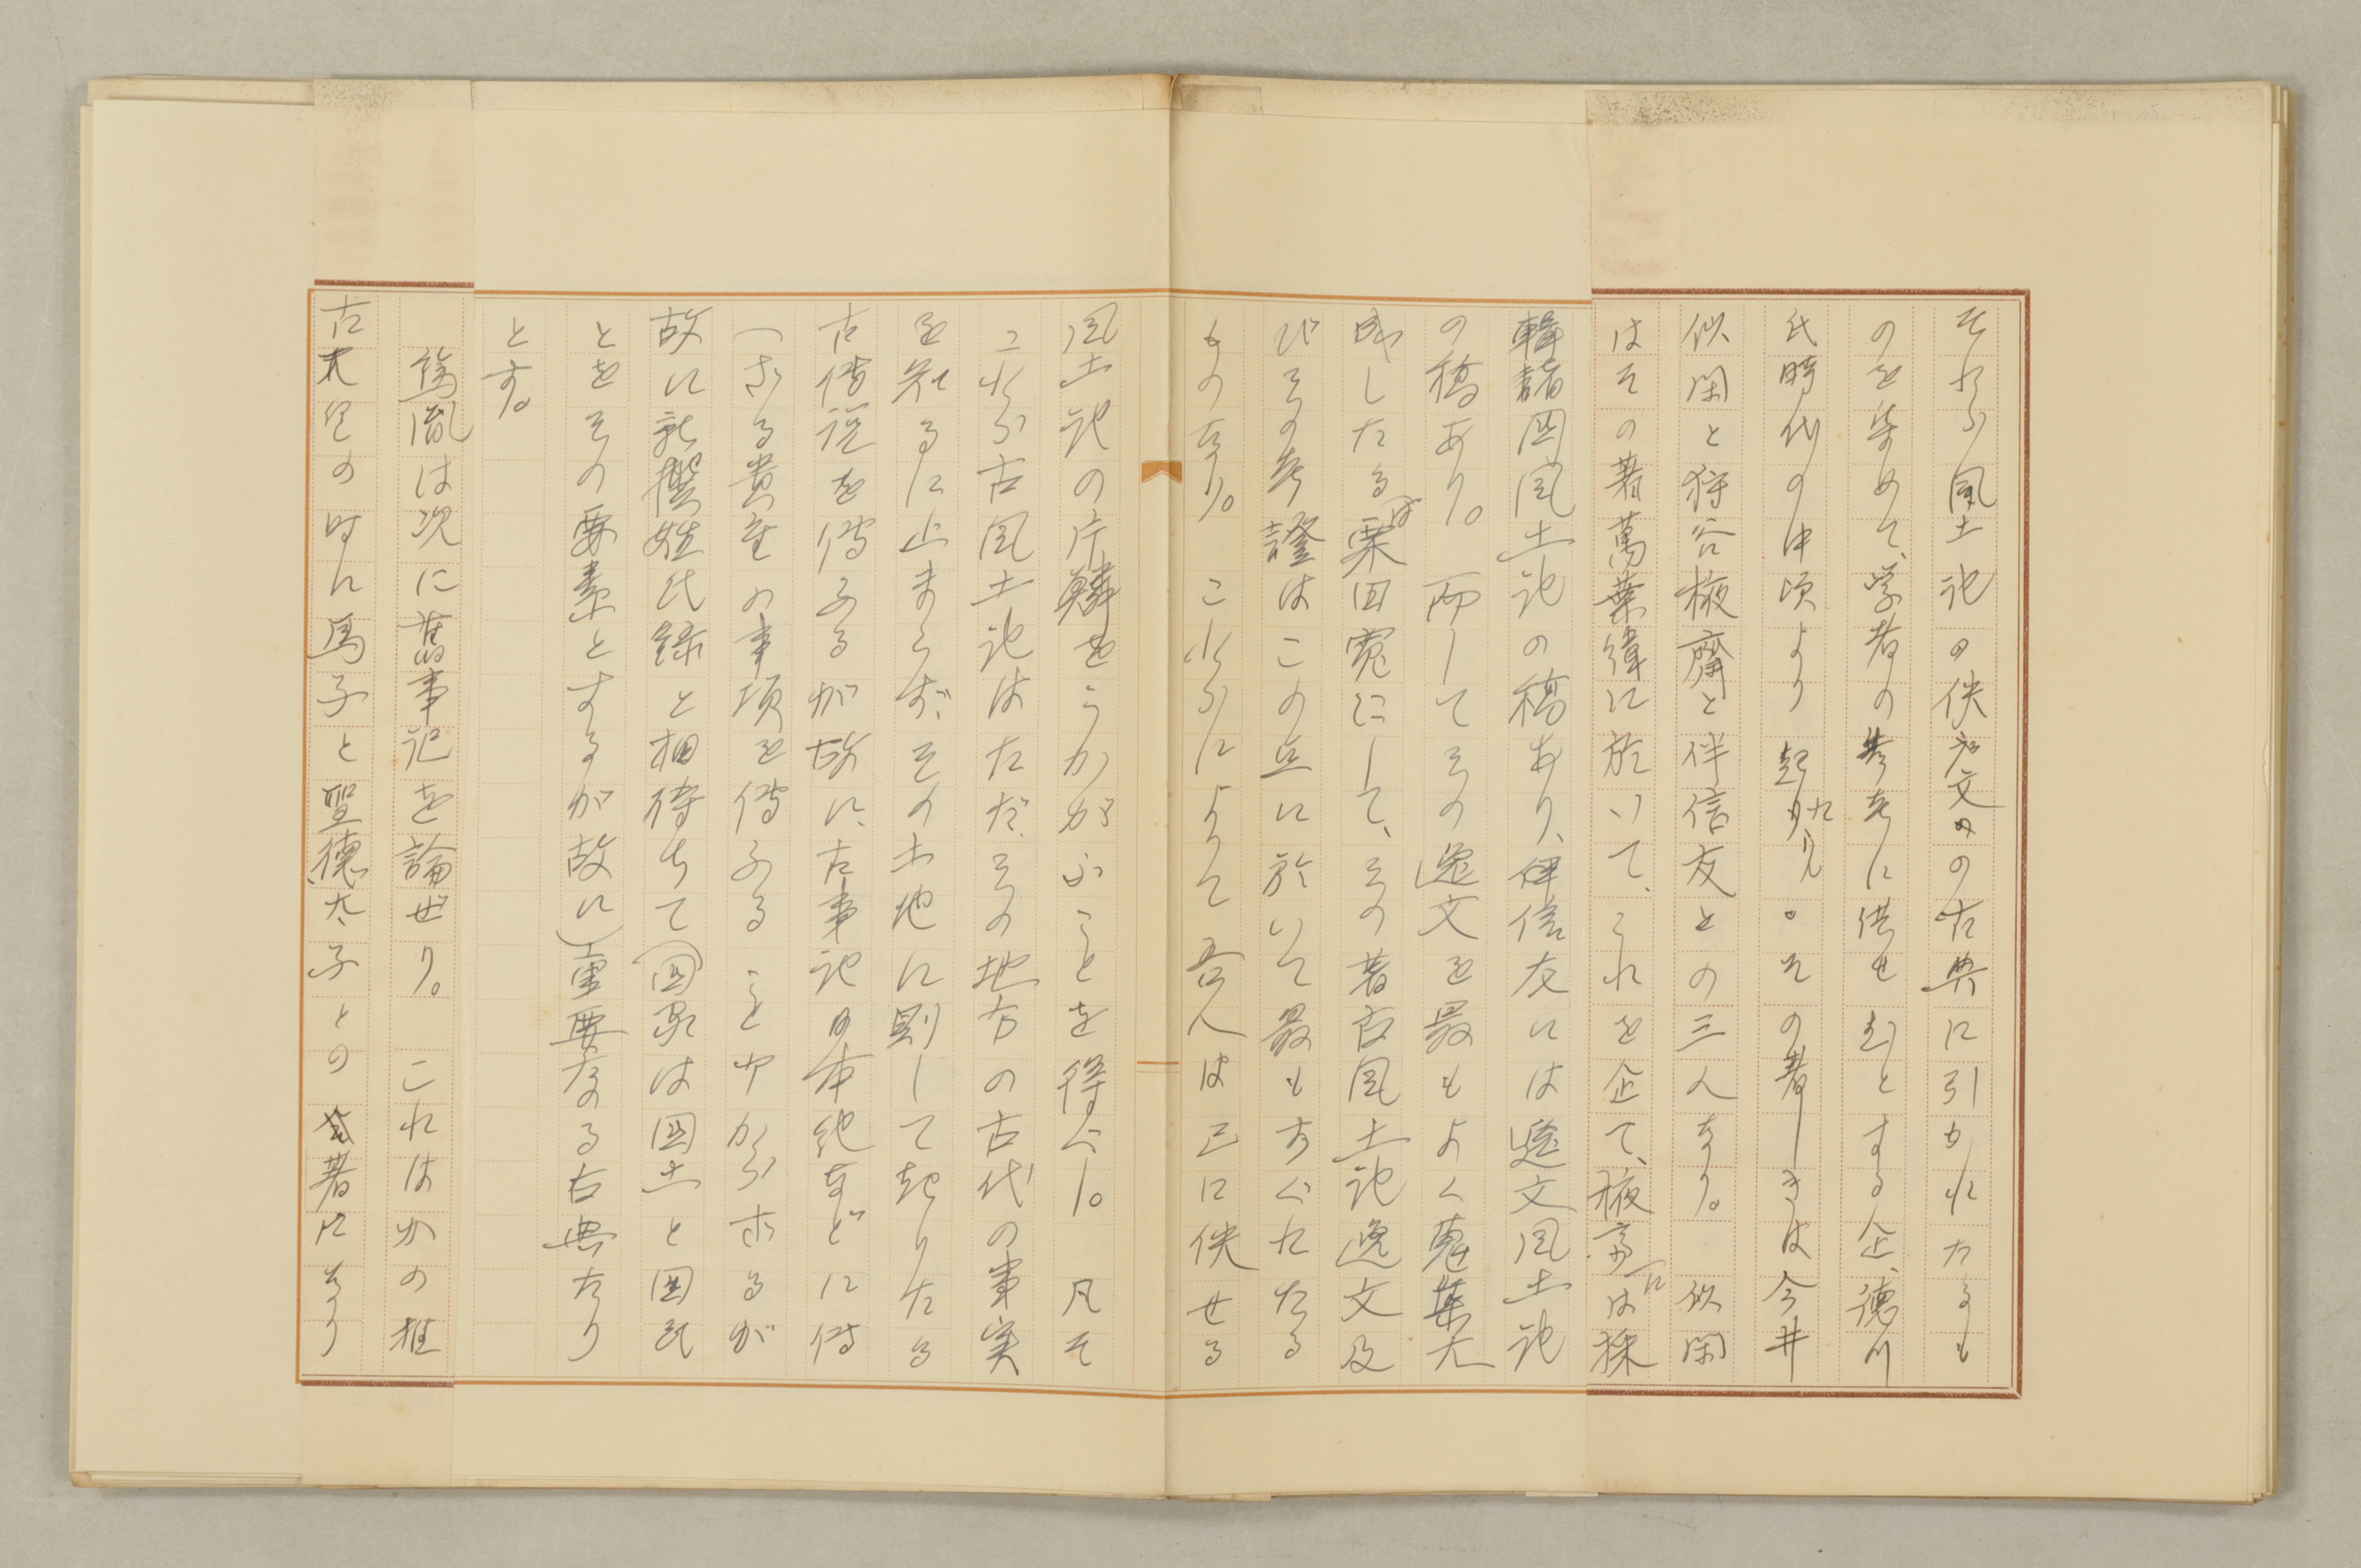 それら風土記の佚文の古典に引かれたるも
のを集めて、学者の考究に供せむとする企、德川
氏時代の中頃より起れり。その著しきは今井
似閑と狩谷棭齋と伴信友との三人なり。似閑
はその著萬葉緯に於いて、これを企て、棭斎には採
輯諸国風土記の稿あり、伴信友には逸文風土記
の稿あり。而してその逸文を最もよく蒐集大
成したるは栗田寛にして、その著古風土記逸文及
びその考證はこの点に於いて最もすぐれたる
ものなり。これらによりて吾人は正に佚せる
風土記の片鱗をうかがふことを得べし。凡そ
これら古風土記はただその地方の古代の事実
を知るに止まらず、その土地に則して起りたる
古傳説を傳ふるが故に、古事記日本紀などに傳
へざる貴重の事項を傳ふること少からざるが
故に新撰姓氏錄と相待ちて(国家は国土と国民
とをその要素とするが故に)重要なる古典たり
とす。
篤胤は次に舊事記を論ぜり。これはかの推
古天皇の時に馬子と聖德太子との共著になり